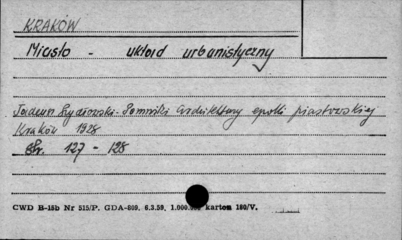 KRAKÓW
Miasto - układ urbanistyczny
Tadeusz Szydłowski - Pomniki architektury epoki piastowskiej
Kraków 1928
Str. 127 - 128
CWD B-15b Nr 515/P. GDA-809. 6.3.59. 1.000.000 kartek 180/V.